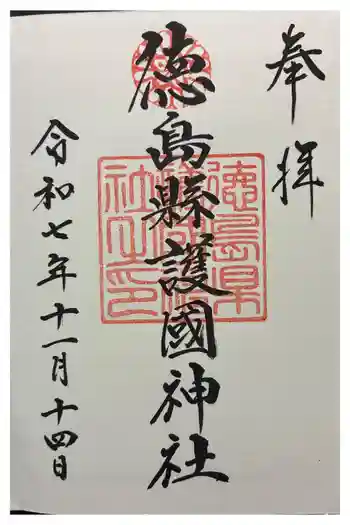 奉拝
徳島縣護國神社
令和七年十一月十四日
徳島県
護國神
社之印